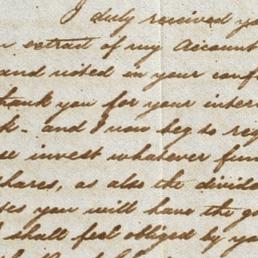 I duly received yo
extract of my Account
and noted in your conf
thank you for your inter
and I now beg to re
invest whatever fun
shares, as also the divide
you will have the go
I shall feel obliged by yo